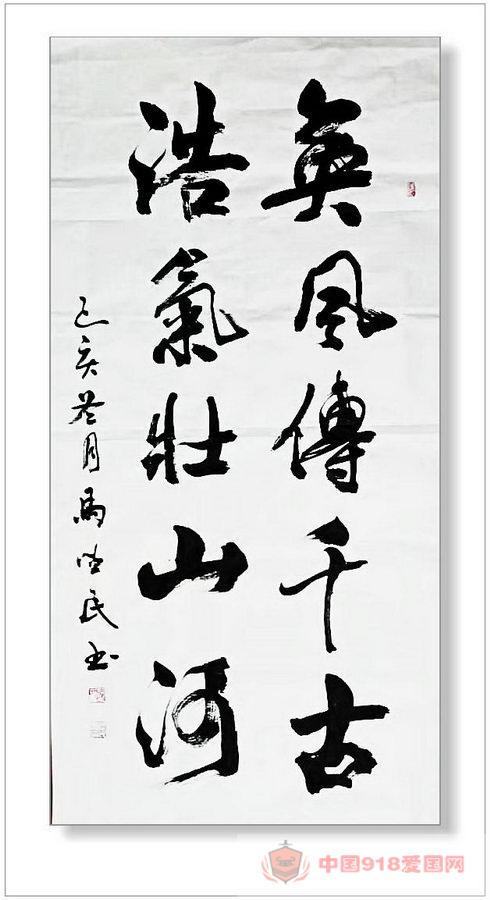 英風傳千古
浩氣壯山河
己亥冬月馬
民书
中国918爱国网